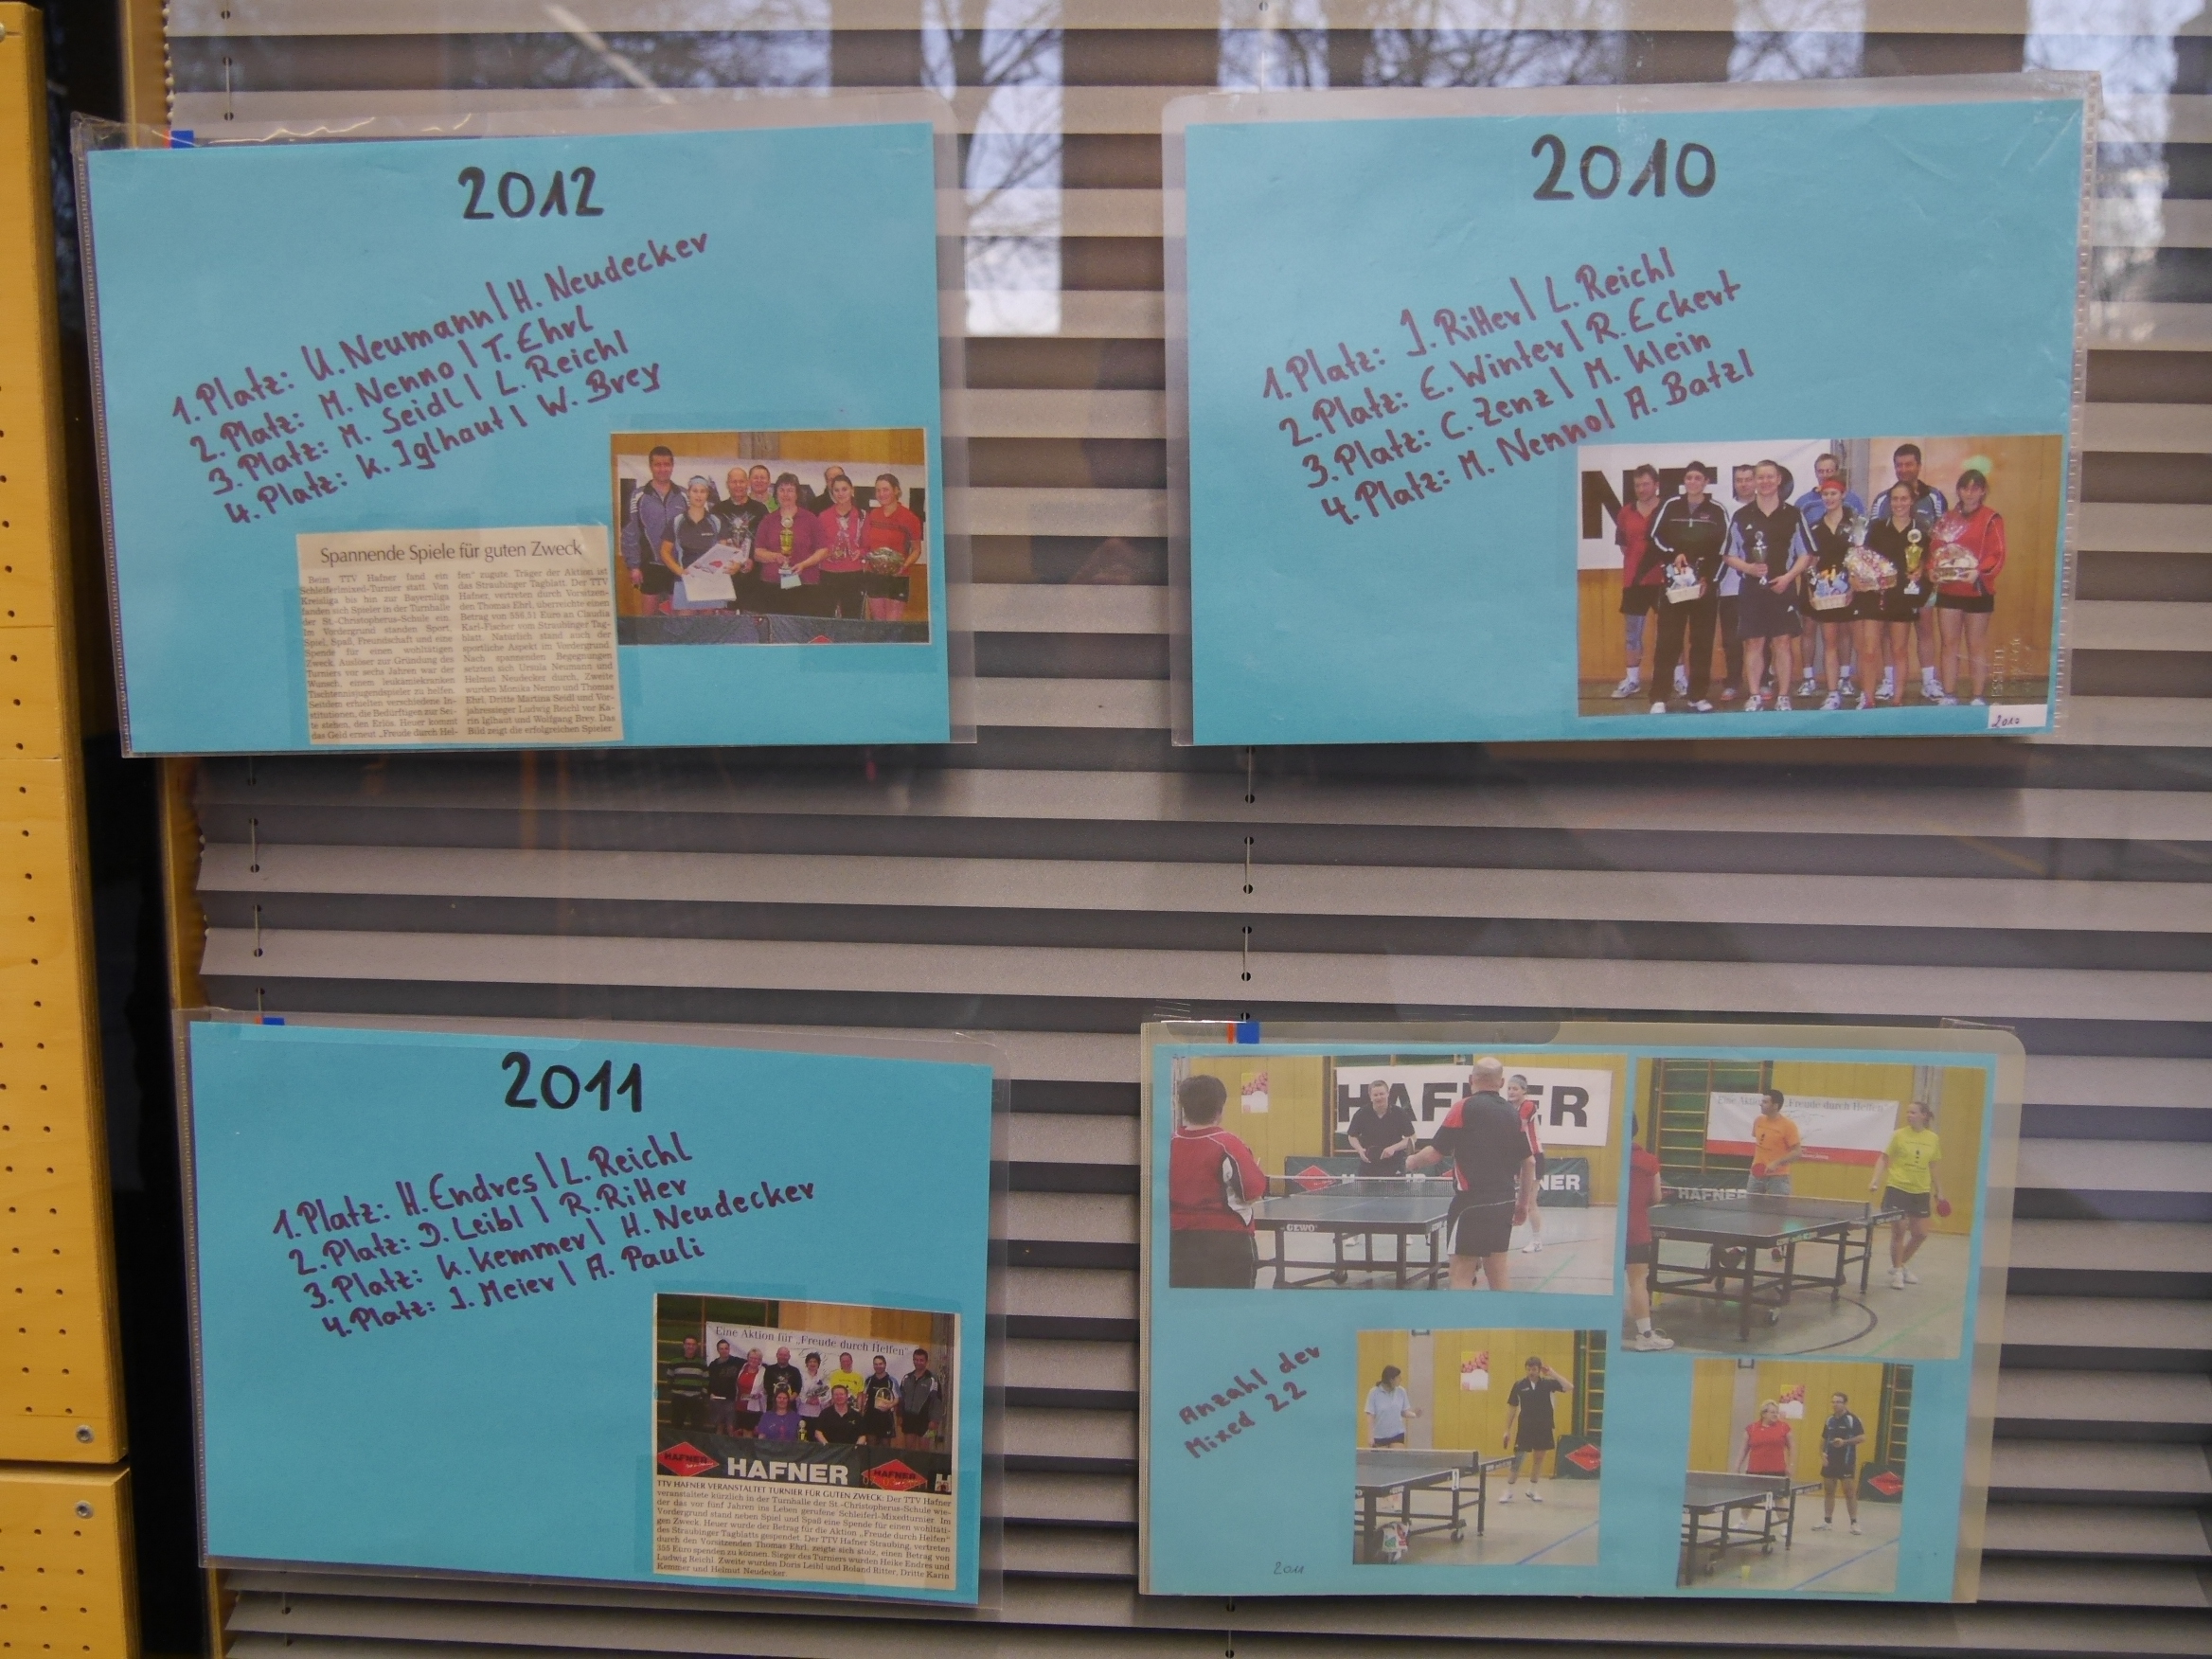 2012
1. Platz: U. Neumann | H. Neudecker
2. Platz: M. Nenno | T. Ehrl
3. Platz: M. Seidl | L. Reichl
4. Platz: K. Iglhaut | W. Brey
Spannende Spiele für guten Zweck
Beim TTV Hafner fand ein
Schleiferlmixed-Turnier statt. Von
Kreisliga bis hin zur Bayernliga
fanden sich Spieler in der Turnhalle
der St.-Christophorus-Schule ein.
Im Vordergrund standen Sport,
Spiel, Spaß, Freundschaft und eine
Spende für einen wohltätigen
Zweck. Auslöser zur Gründung des
Turniers vor sechs Jahren war der
Wunsch, einem leukämiekranken
Tischtennisjugendspieler zu helfen.
Seitdem erhielten verschiedene In-
stitutionen, die Bedürftigen zur Sei-
te stehen, den Erlös. Heuer kommt
das Geld erneut „Freude durch Hel-
fen" zugute. Träger der Aktion ist
das Straubinger Tagblatt. Der TTV
Hafner, vertreten durch Vorsitzen-
den Thomas Ehrl, überreichte einen
Betrag von 558,51 Euro an Claudia
Karl-Fischer vom Straubinger Tag-
blatt. Natürlich stand auch der
sportliche Aspekt im Vordergrund.
Nach spannenden Begegnungen
setzten sich Ursula Neumann und
Helmut Neudecker durch, Zweite
wurden Monika Nenno und Thomas
Ehrl, Dritte Martina Seidl und Vor-
jahressieger Ludwig Reichl vor Ka-
rin Iglhaut und Wolfgang Brey. Das
Bild zeigt die erfolgreichen Spieler.
2010
1. Platz: J. Ritter | L. Reichl
2. Platz: E. Winter | R. Eckert
3. Platz: C. Zenz | M. Klein
4. Platz: M. Nenno | A. Batzl
NE
2010
2011
1. Platz: H. Endres | L. Reichl
2. Platz: D. Leibl | R. Ritter
3. Platz: K. Kemmer | H. Neudecker
4. Platz: J. Meier | A. Pauli
Eine Aktion für „Freude durch Helfen"
HAFNER
HAFNER
HAFNER
H
TTV HAFNER VERANSTALTET TURNIER FÜR GUTEN ZWECK: Der TTV Hafner
veranstaltete kürzlich in der Turnhalle der St.-Christopherus-Schule wie-
der das vor fünf Jahren ins Leben gerufene Schleiferl-Mixedturnier. Im
Vordergrund stand neben Spiel und Spaß eine Spende für einen wohltäti-
gen Zweck. Heuer wurde der Betrag für die Aktion „Freude durch Helfen"
des Straubinger Tagblatts gespendet. Der TTV Hafner Straubing, vertreten
durch den Vorsitzenden Thomas Ehrl, zeigte sich stolz, einen Betrag von
355 Euro spenden zu können. Sieger des Turniers wurden Heike Endres und
Ludwig Reichl. Zweite wurden Doris Leibl und Roland Ritter, Dritte Karin
Kemmer und Helmut Neudecker.
HAFNER
NER
GEWO
Eine Aktion „Freude durch Helfen"
HAFNER
Anzahl der
Mixed 22
2011